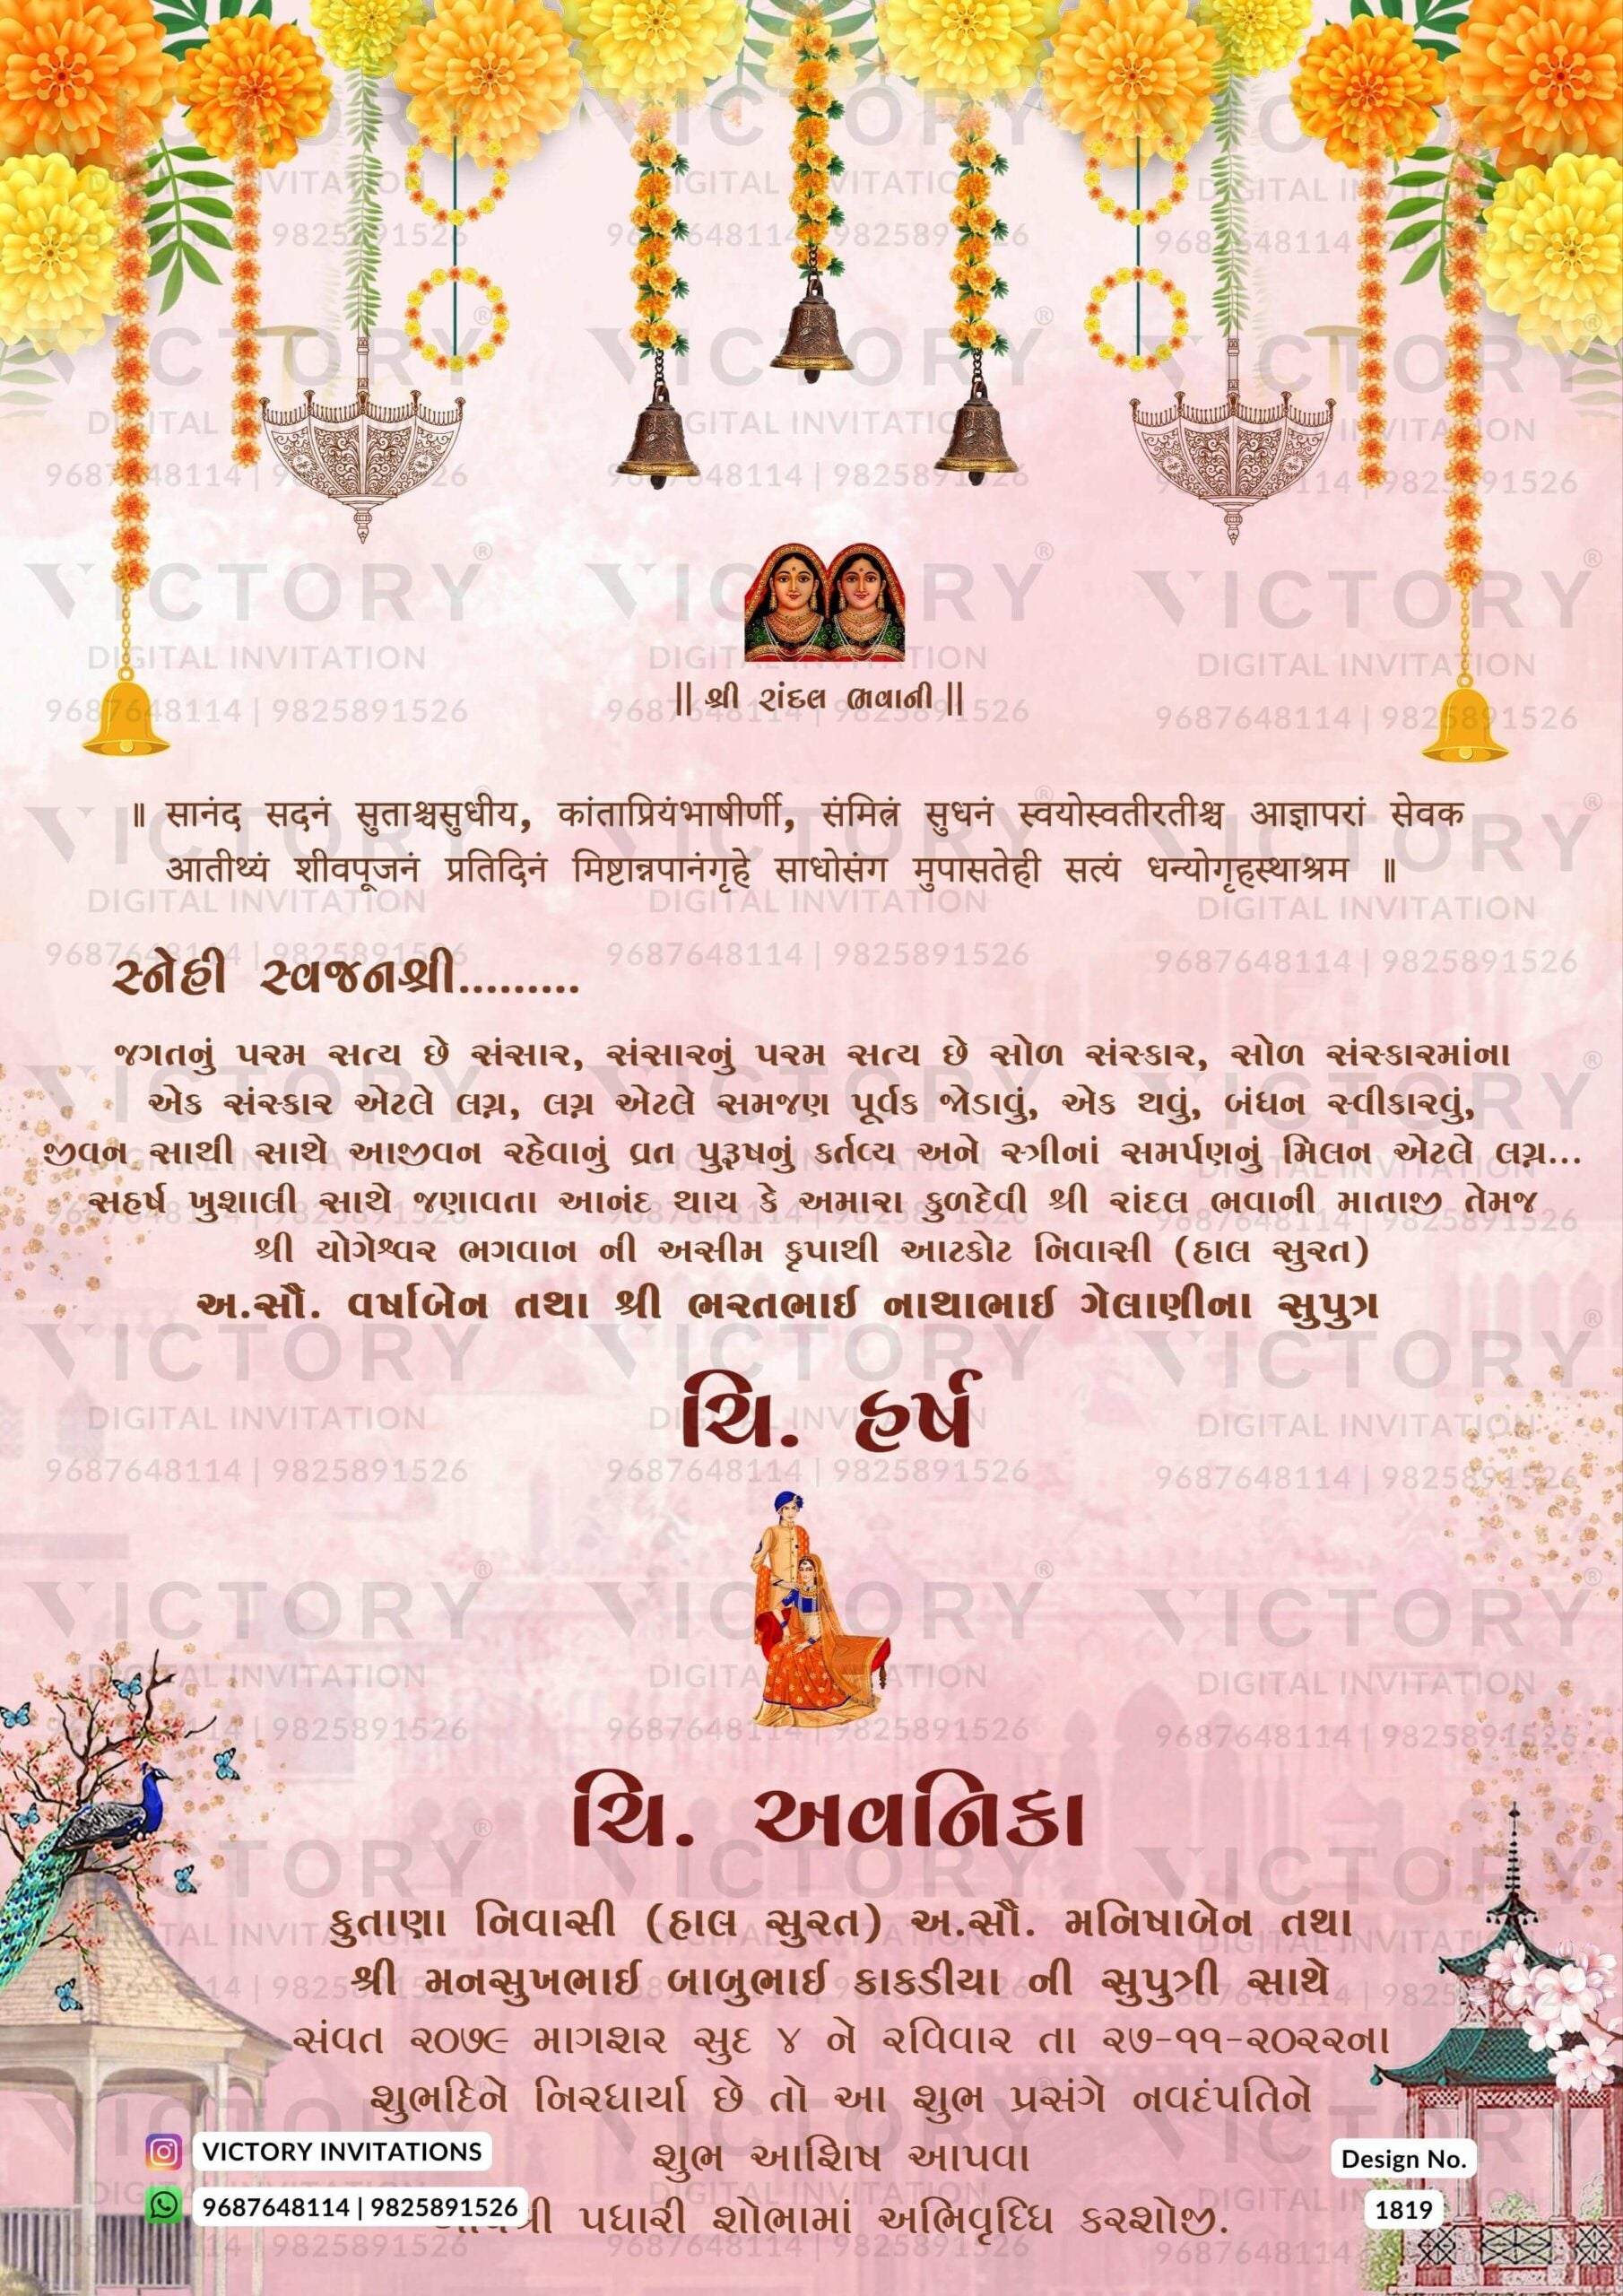 || શ્રી રાંદલ ભવાની ||
॥ सानंद सदनं सुताश्चसुधीय, कांताप्रियंभाषीर्णी, संमित्रं सुधनं स्वयोस्वतीरतीश्च आज्ञापरां सेवक
आतीथ्यं शीवपूजनं प्रतिदिनं मिष्टान्नपानंगृहे साधोसंग मुपासतेही सत्यं धन्योगृहस्थाश्रम ॥
સ્નેહી સ્વજનશ્રી.........
જગતનું પરમ સત્ય છે સંસાર, સંસારનું પરમ સત્ય છે સોળ સંસ્કાર, સોળ સંસ્કારમાંના
એક સંસ્કાર એટલે લગ્ન, લગ્ન એટલે સમજણ પૂર્વક જોડાવું, એક થવું, બંધન સ્વીકારવું,
જીવન સાથી સાથે આજીવન રહેવાનું વ્રત પુરૂષનું કર્તવ્ય અને સ્ત્રીનાં સમર્પણનું મિલન એટલે લગ્ન...
સહર્ષ ખુશાલી સાથે જણાવતા આનંદ થાય કે અમારા કુળદેવી શ્રી રાંદલ ભવાની માતાજી તેમજ
શ્રી યોગેશ્વર ભગવાન ની અસીમ કૃપાથી આટકોટ નિવાસી (હાલ સુરત)
અ.સૌ. વર્ષાબેન તથા શ્રી ભરતભાઈ નાથાભાઈ ગેલાણીના સુપુત્ર
ચિ. હર્ષ
ચિ. અવનિકા
કુતાણા નિવાસી (હાલ સુરત) અ.સૌ. મનિષાબેન તથા
શ્રી મનસુખભાઈ બાબુભાઈ કાકડીયા ની સુપુત્રી સાથે
સંવત ૨૦૭૯ માગશર સુદ ૪ ને રવિવાર તા ૨૭-૧૧-૨૦૨૨ના
શુભદિને નિરધાર્યા છે તો આ શુભ પ્રસંગે નવદંપતિને
શુભ આશિષ આપવા
પધારી શોભામાં અભિવૃધ્ધિ કરશોજી.
VICTORY INVITATIONS
9687648114 | 9825891526
Design No.
1819
VICTORY
DIGITAL INVITATION
9687648114 | 9825891526